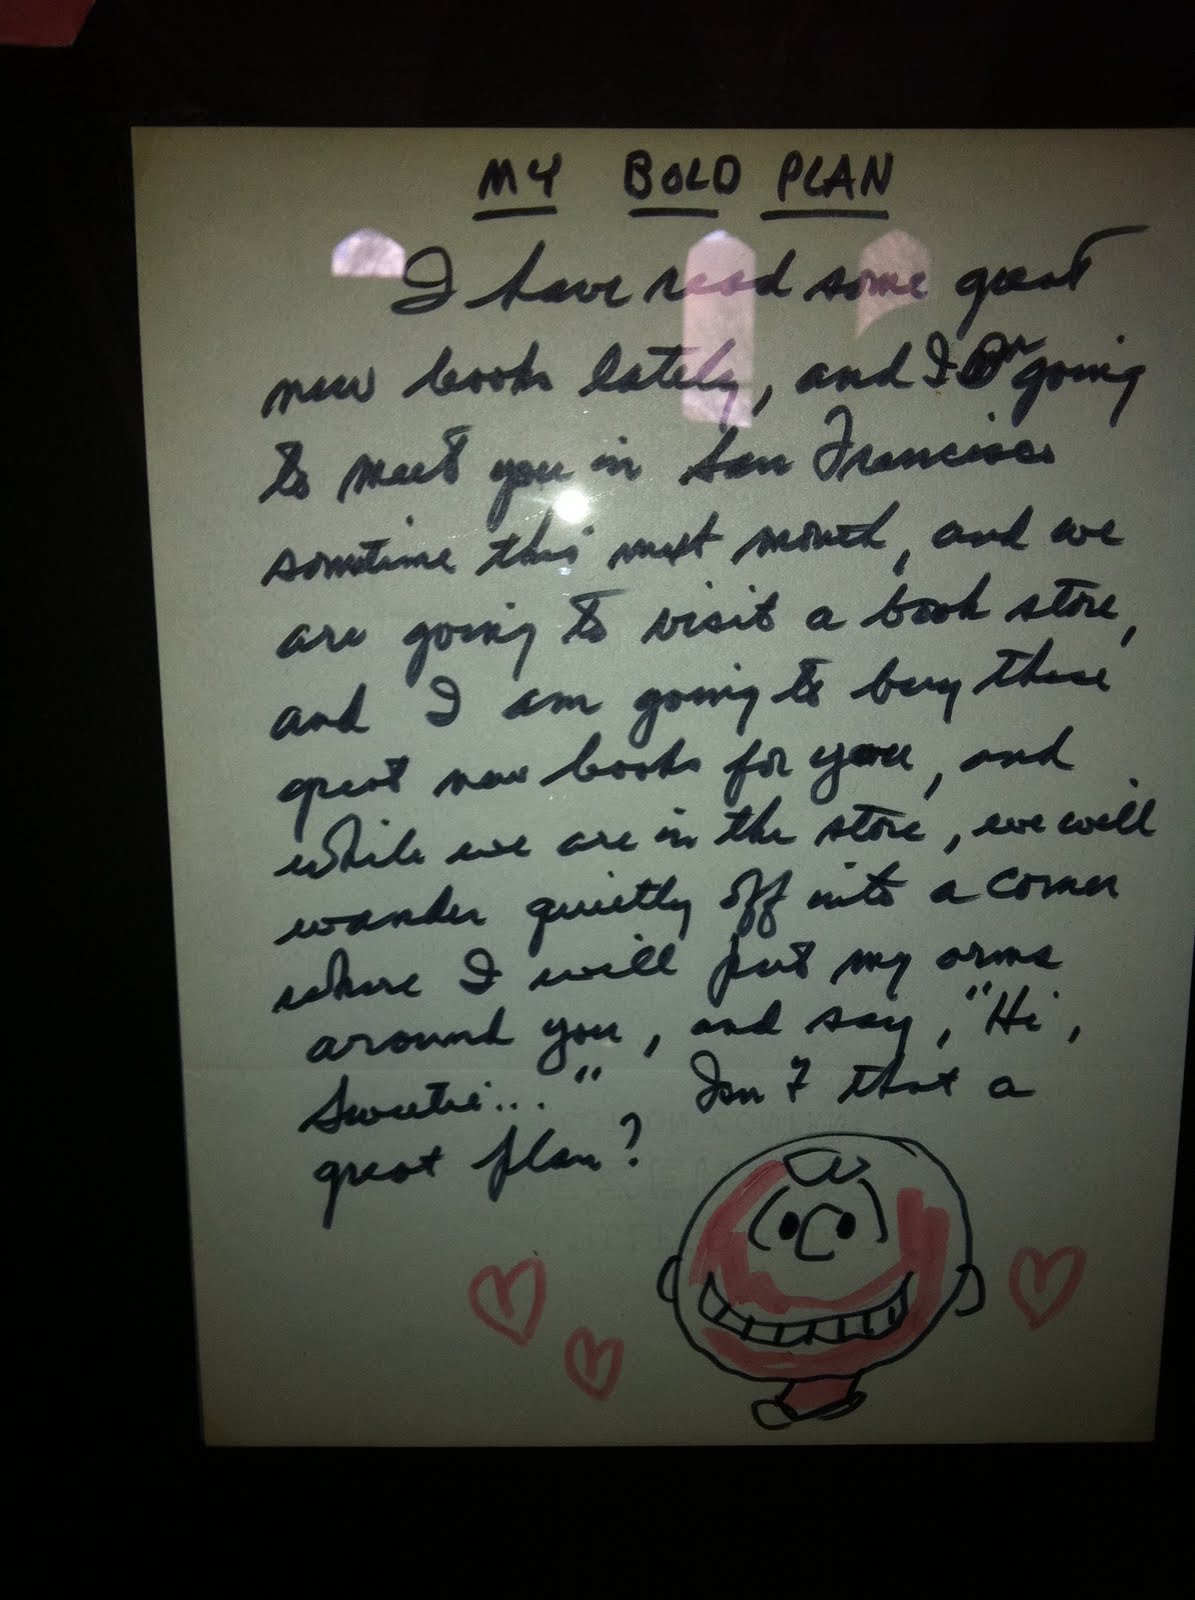 MY BOLD PLAN
I have read some great
new books lately, and I am going
to meet you in San Francisco
sometime this next month, and we
are going to visit a book store,
and I am going to buy these
great new books for you, and
while we are in the store, we will
wander quietly off into a corner
where I will put my arms
around you, and say, "Hi,
Sweetie..." Isn't that a
great plan?